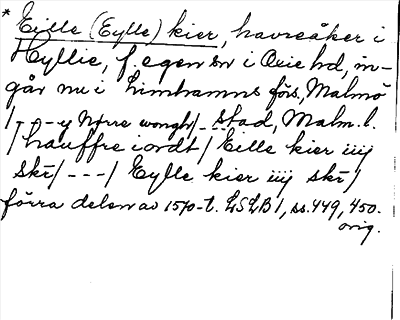 * Eille (Eylle) kier, havreåker i
Hyllie, f. egen sn i Oxie hd, in-
går nu i Limhamns förs, Malmö
/- - - y Nørre wongh/ - - stad, Malm. l.
/ hauffre iordt / Eille kier iiij
skr/ - - - / Eylle kier iiij skr/
förra delen av 1570-t. LSLB 1, ss. 449, 450.
orig.